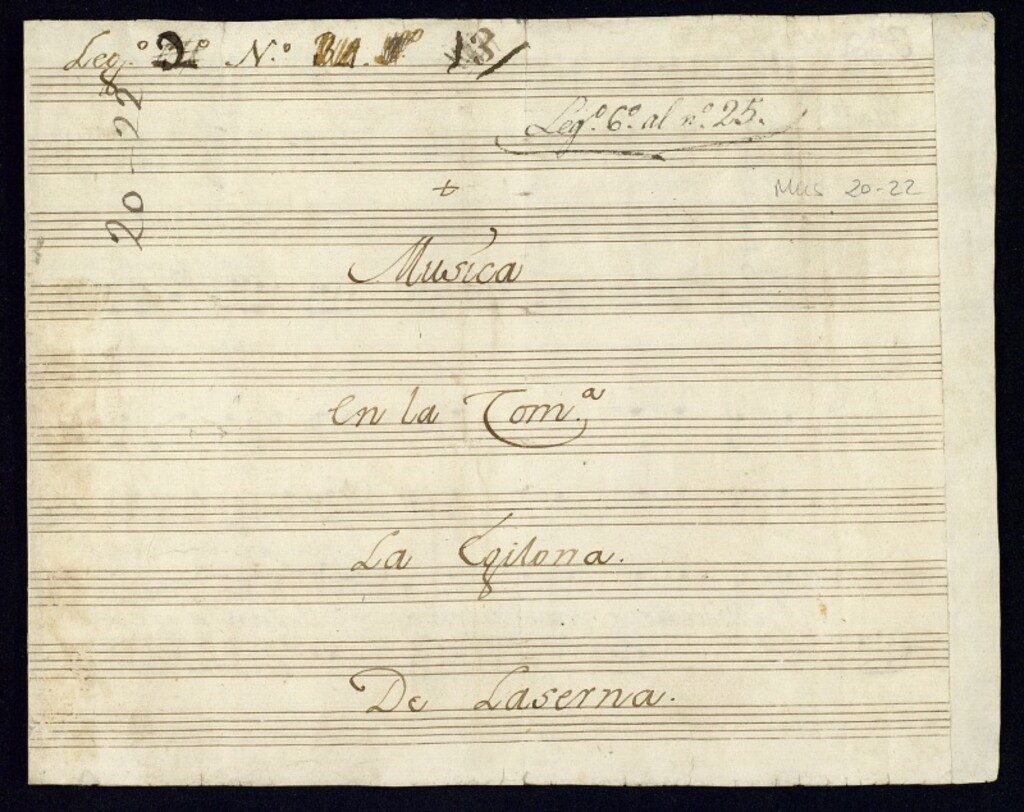 Leg.º Nº
Legº. 6º. al nº. 25.
20-22
Mus 20-22
Musica
En la Com.ª
La Egilona.
De Laserna.